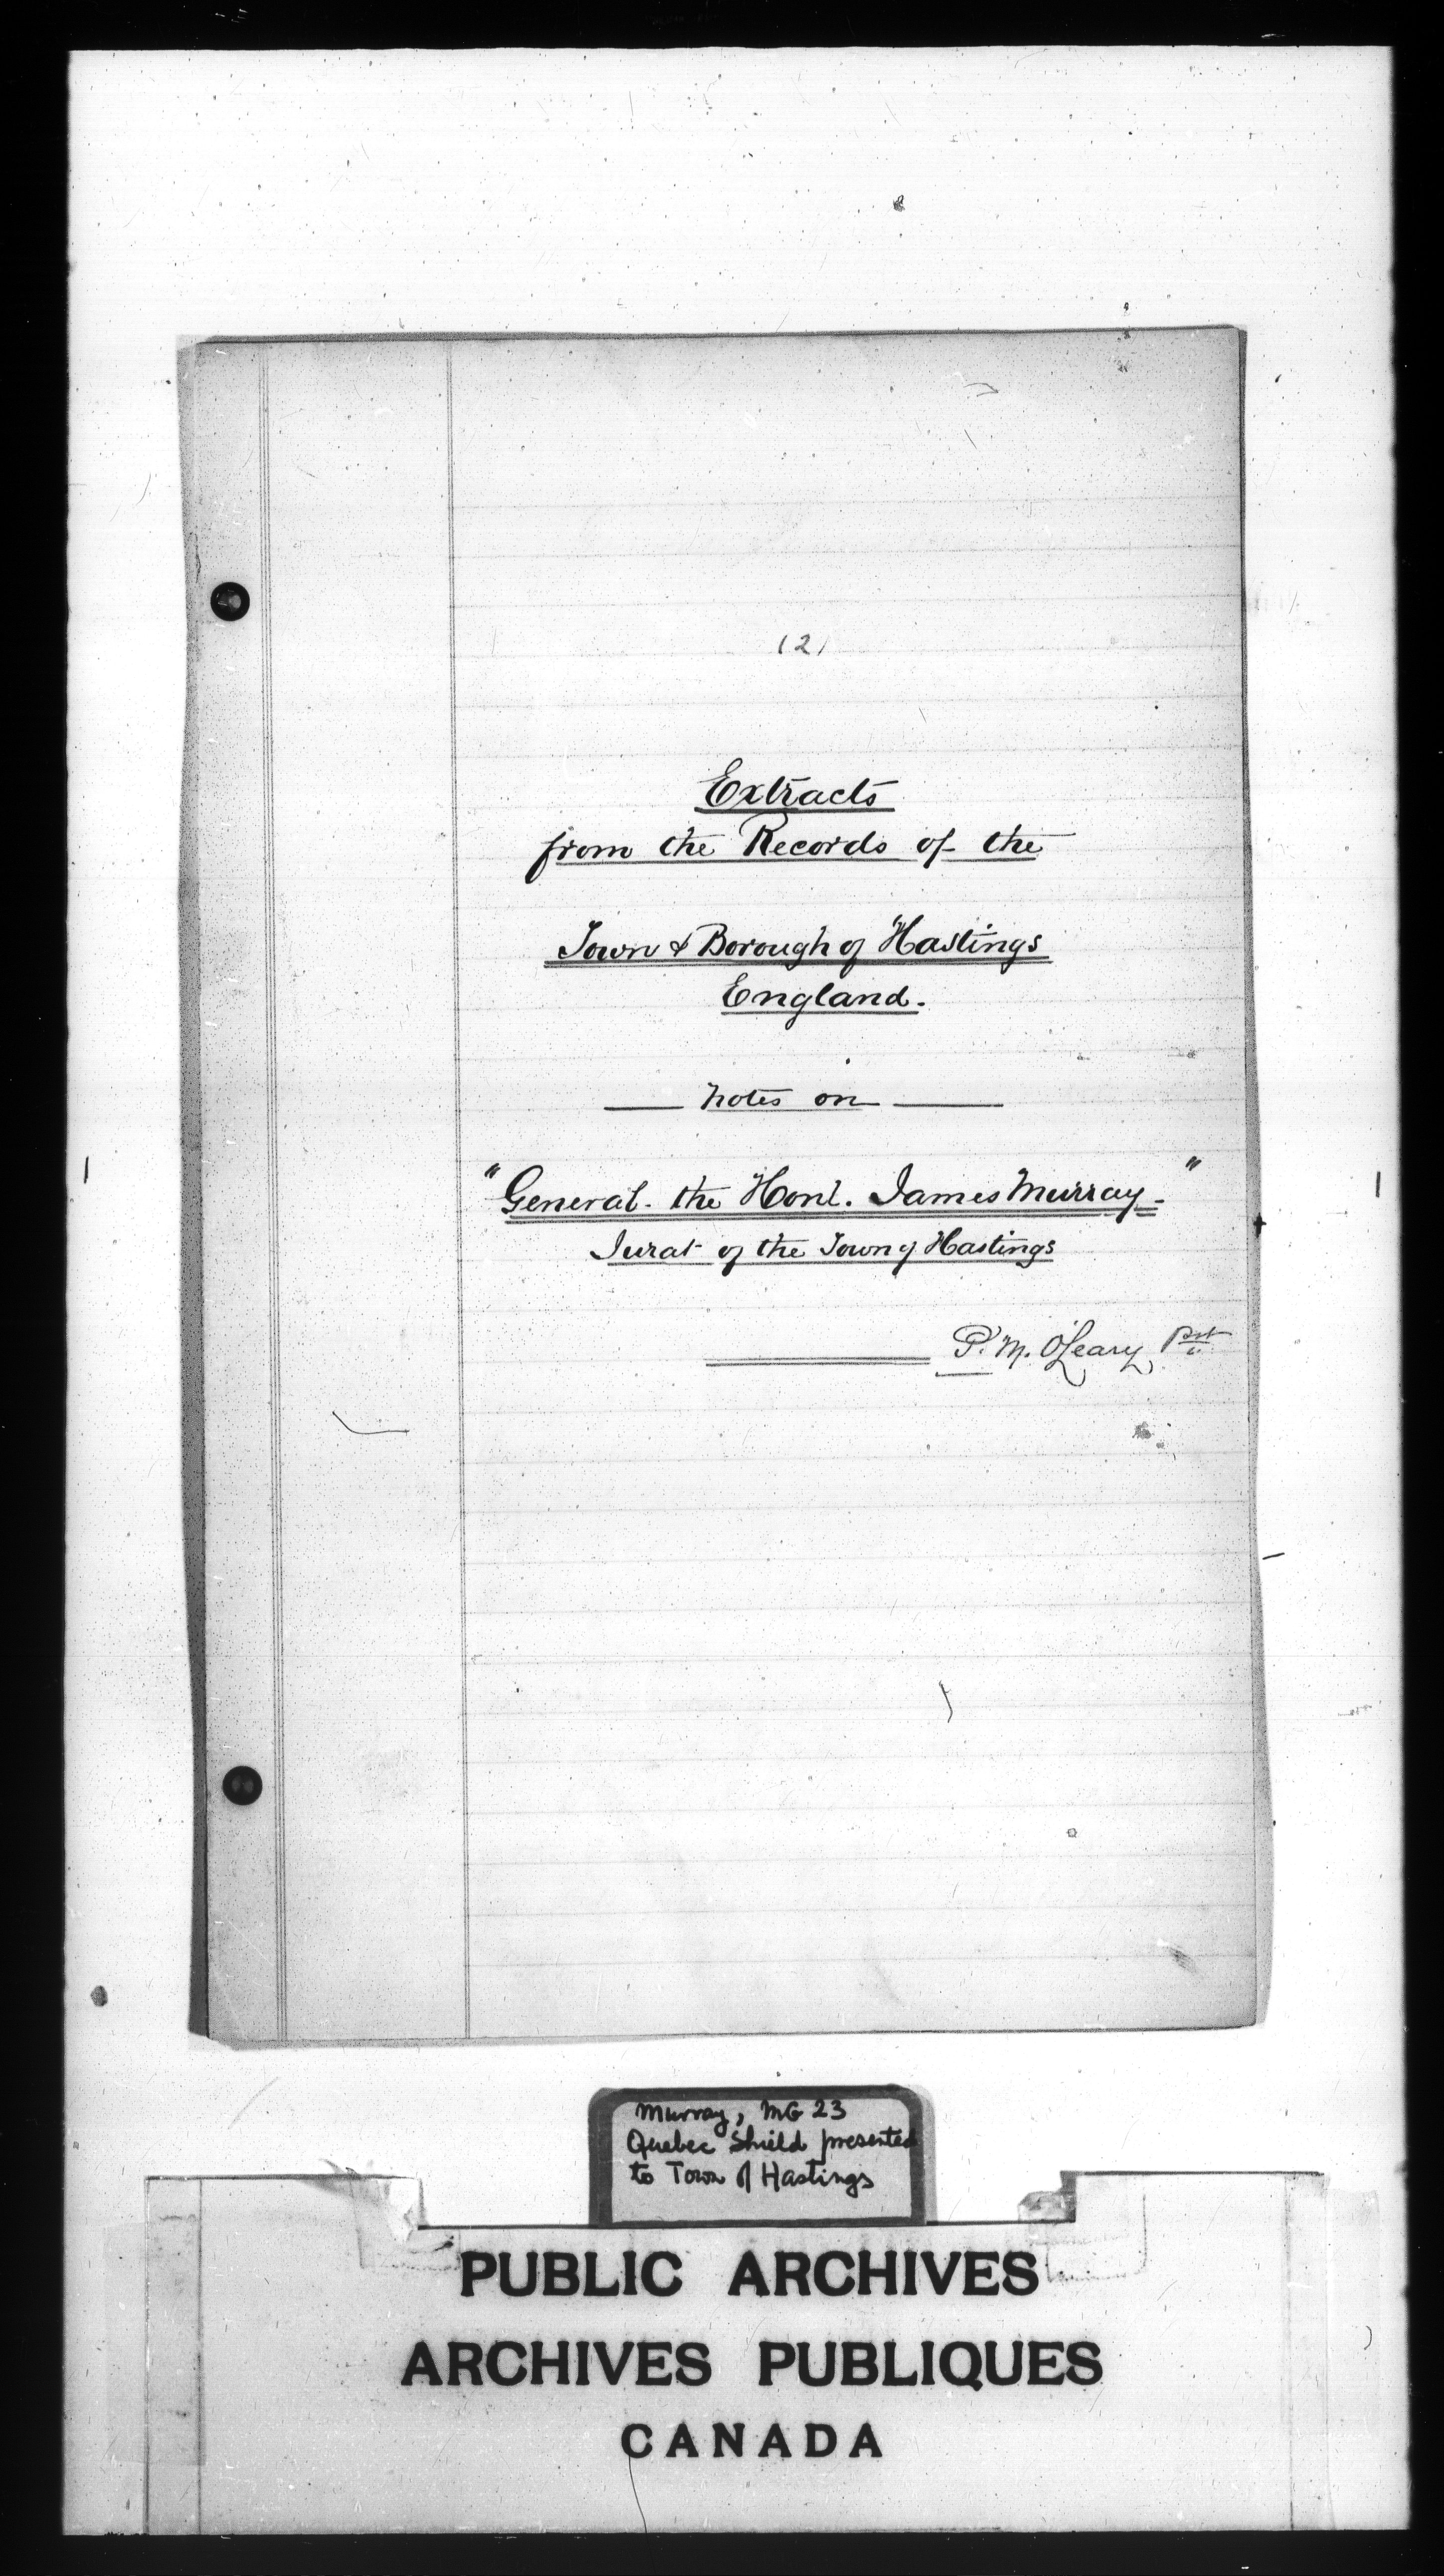 (2)
Extracts
from the Records of the
Town & Borough of Hastings
England.
Notes on
"General. the Honl. James Murray."
Jurat of the Town of Hastings
P. M. O'Leary Pst
Murray, MG 23
Quebec Shield presented
to Town of Hastings
PUBLIC ARCHIVES
ARCHIVES PUBLIQUES
CANADA